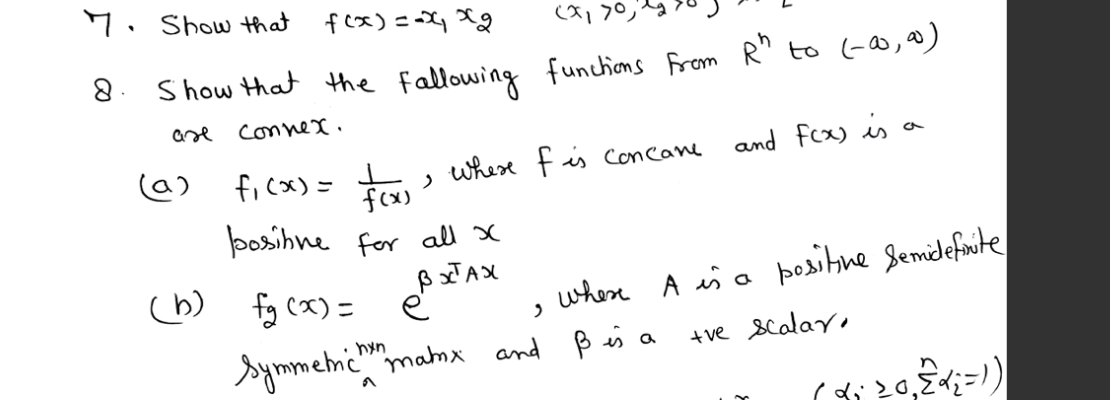 7. Show that f(x) = -x₁ x₂ (x₁ >0, x₂ >0)
8. Show that the fallowing functions from Rⁿ to (-∞, ∞)
are connex.
(a) f₁(x) = 1/f(x) , where f is concane and f(x) is a
positine for all x
(b) f₂(x) = e^(β xᵀAx) , where A is a positine semidefinite
symmetric n×n matrix and β is a +ve scalar.
(αᵢ ≥0, ⁿΣαᵢ=1)